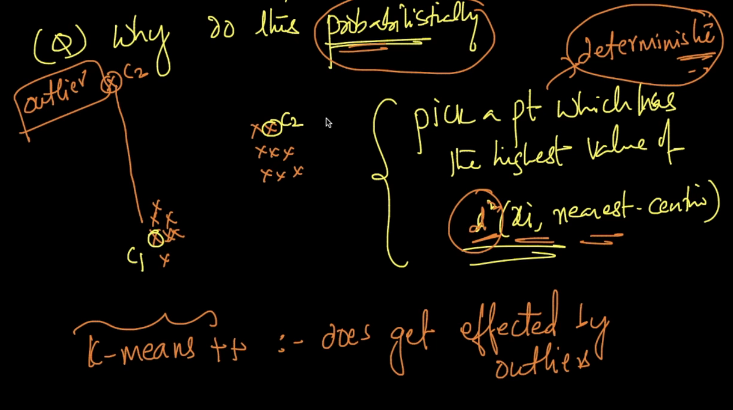 (Q) Why do this probabilistically
deterministic
outlier
C2
C2
pick a pt which has
the highest value of
d²(xi, nearest-centro)
C1
K-means ++ :- does get effected by
outliers